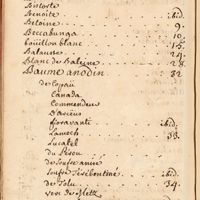 Bistorte
Benoite . ibid.
Betoine . 9.
Beccabunga . 10.
bouillon blanc . 15.
Balaune . 24.
Blanc de Baleine . 28.
Baume anodin . 32
de Copaü
Canada
Commendeur
D'arcéus
fioravanti . ibid.
Lamech . 33.
Lucatel
du Pérou
de Soufre anisé
Soufre Térébentiné . ibid.
de Tolu . 34.
vert de Metz